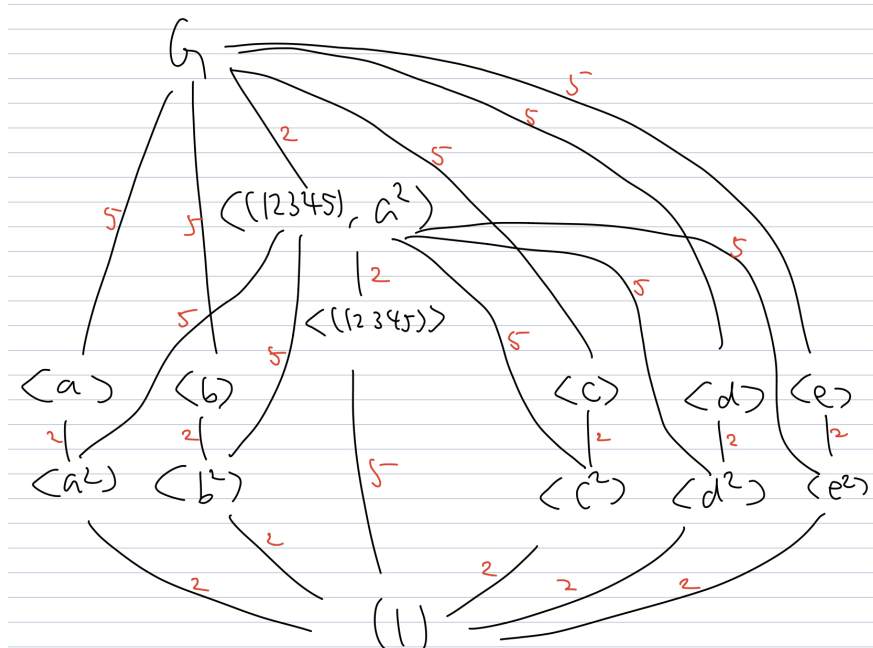 G
5
5
2
5
5
5
<(12345), a²>
5
5
2
5
5
5
<(12345)>
<a> <b> <c> <d> <e>
2 2 2 2 2
<a²> <b²> <c²> <d²> <e²>
5
2 2 2 2 2
(1)